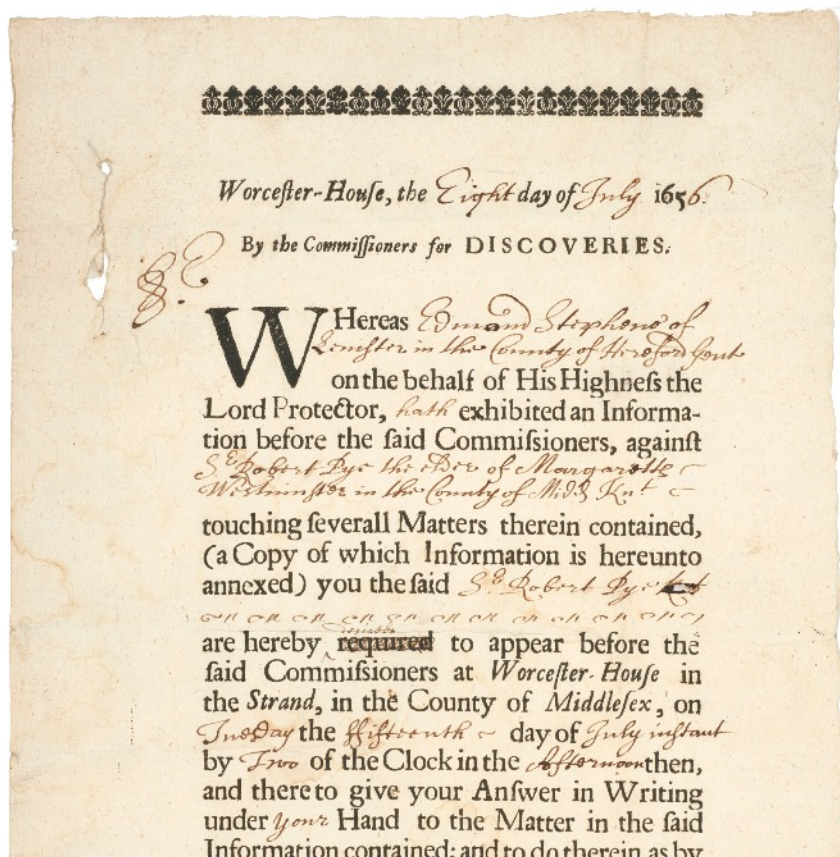 Worceſter-Houſe, the Eight day of July 1656.
By the Commiſſioners for DISCOVERIES.
WHereas Edmond Stephens of
Lemster in the County of Hereford Gent
on the behalf of His Highneſs the
Lord Protector, hath exhibited an Informa-
tion before the ſaid Commiſsioners, against
Sr Robert Pye the elder of Margaretts
Westminster in the County of Midd Knt
touching ſeverall Matters therein contained,
(a Copy of which Information is hereunto
annexed) you the ſaid Sr Robert Pye
are hereby required to appear before the
ſaid Commiſsioners at Worceſter-Houſe in
the Strand, in the County of Middleſex, on
Tuesday the ffifteenth day of July instant
by Two of the Clock in the Afternoon then,
and there to give your Anſwer in Writing
under your Hand to the Matter in the ſaid
Information contained; and to do therein as by